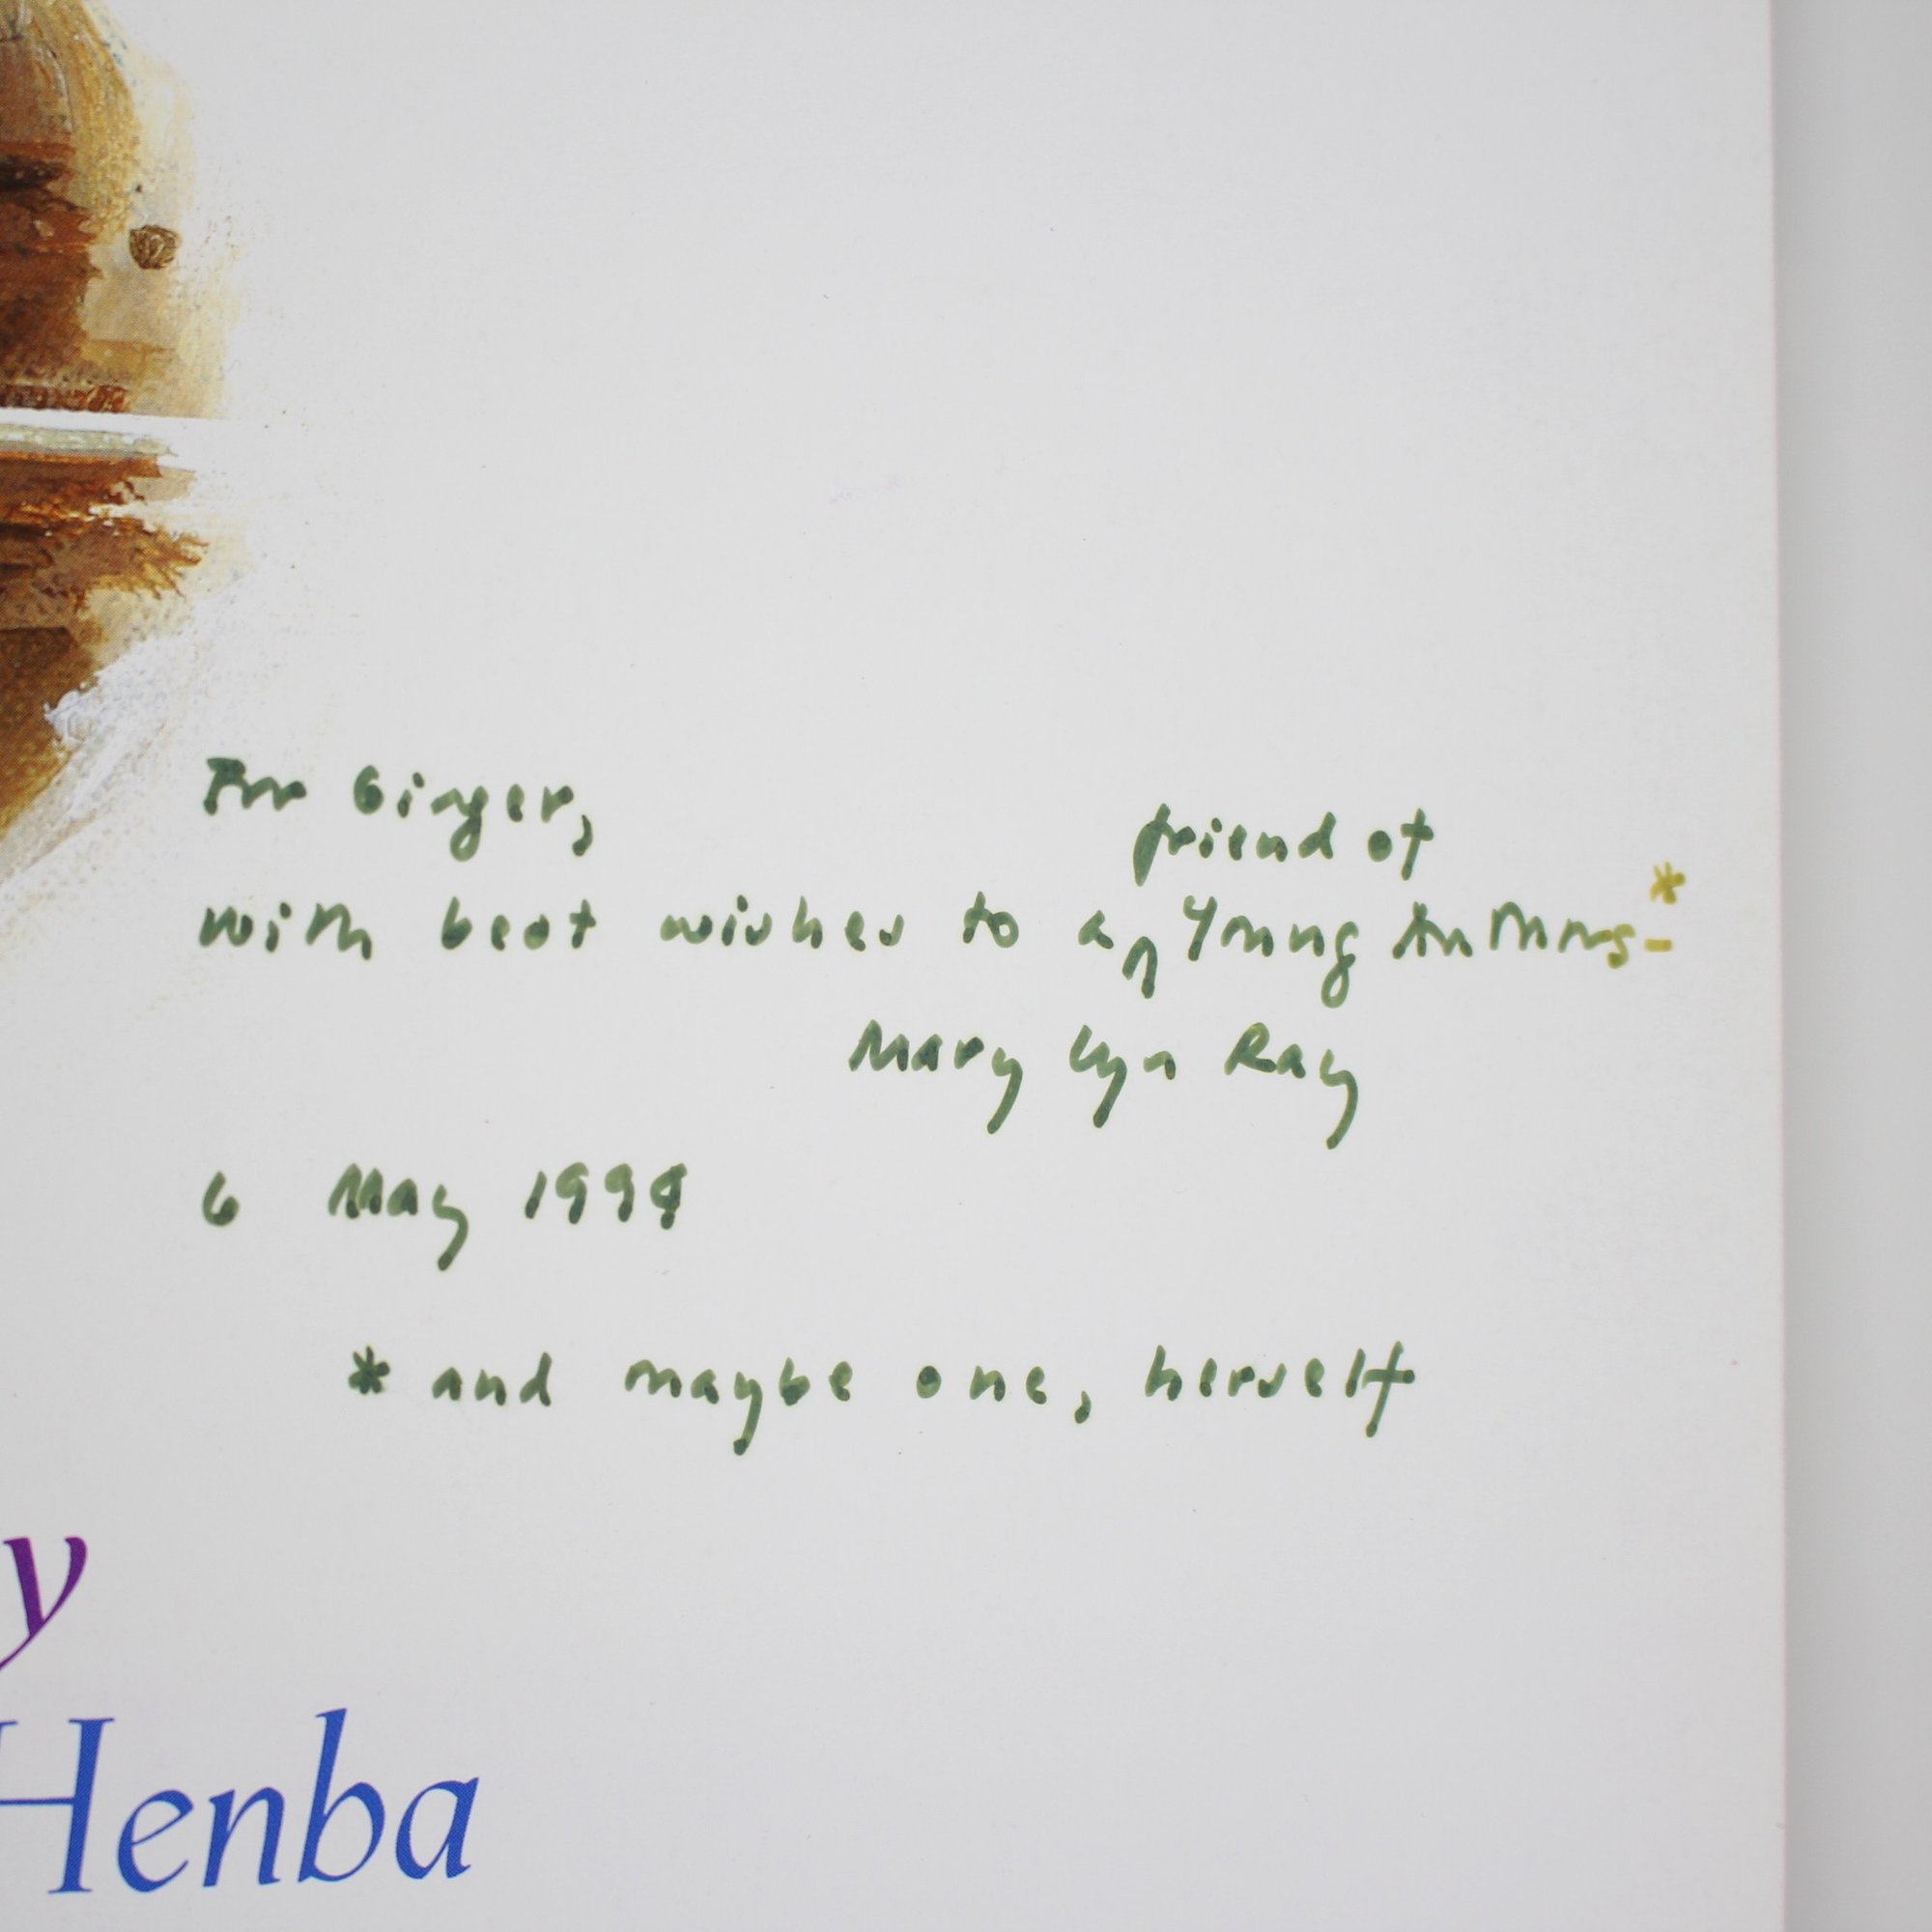 For Ginger,
friend of
with best wishes to a ^ Young Authors-*
Mary Lyn Ray
6 May 1994
* and maybe one, herself
y
Henba